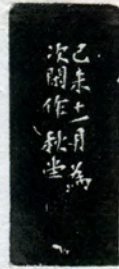 己未十一月為
次閑作秋堂